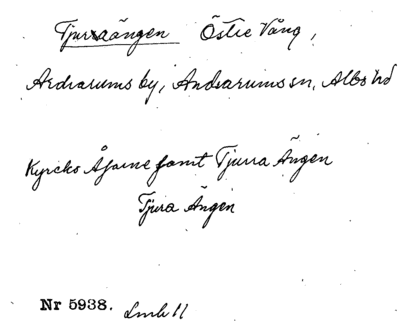 Tjurraängen Östre Vång,
Andrarums by, Andrarums sn, Albo hd
Kyrcko Åjorne samt Tjurra Ängen
Tjura Ängen
Nr 5938. Lmh 11